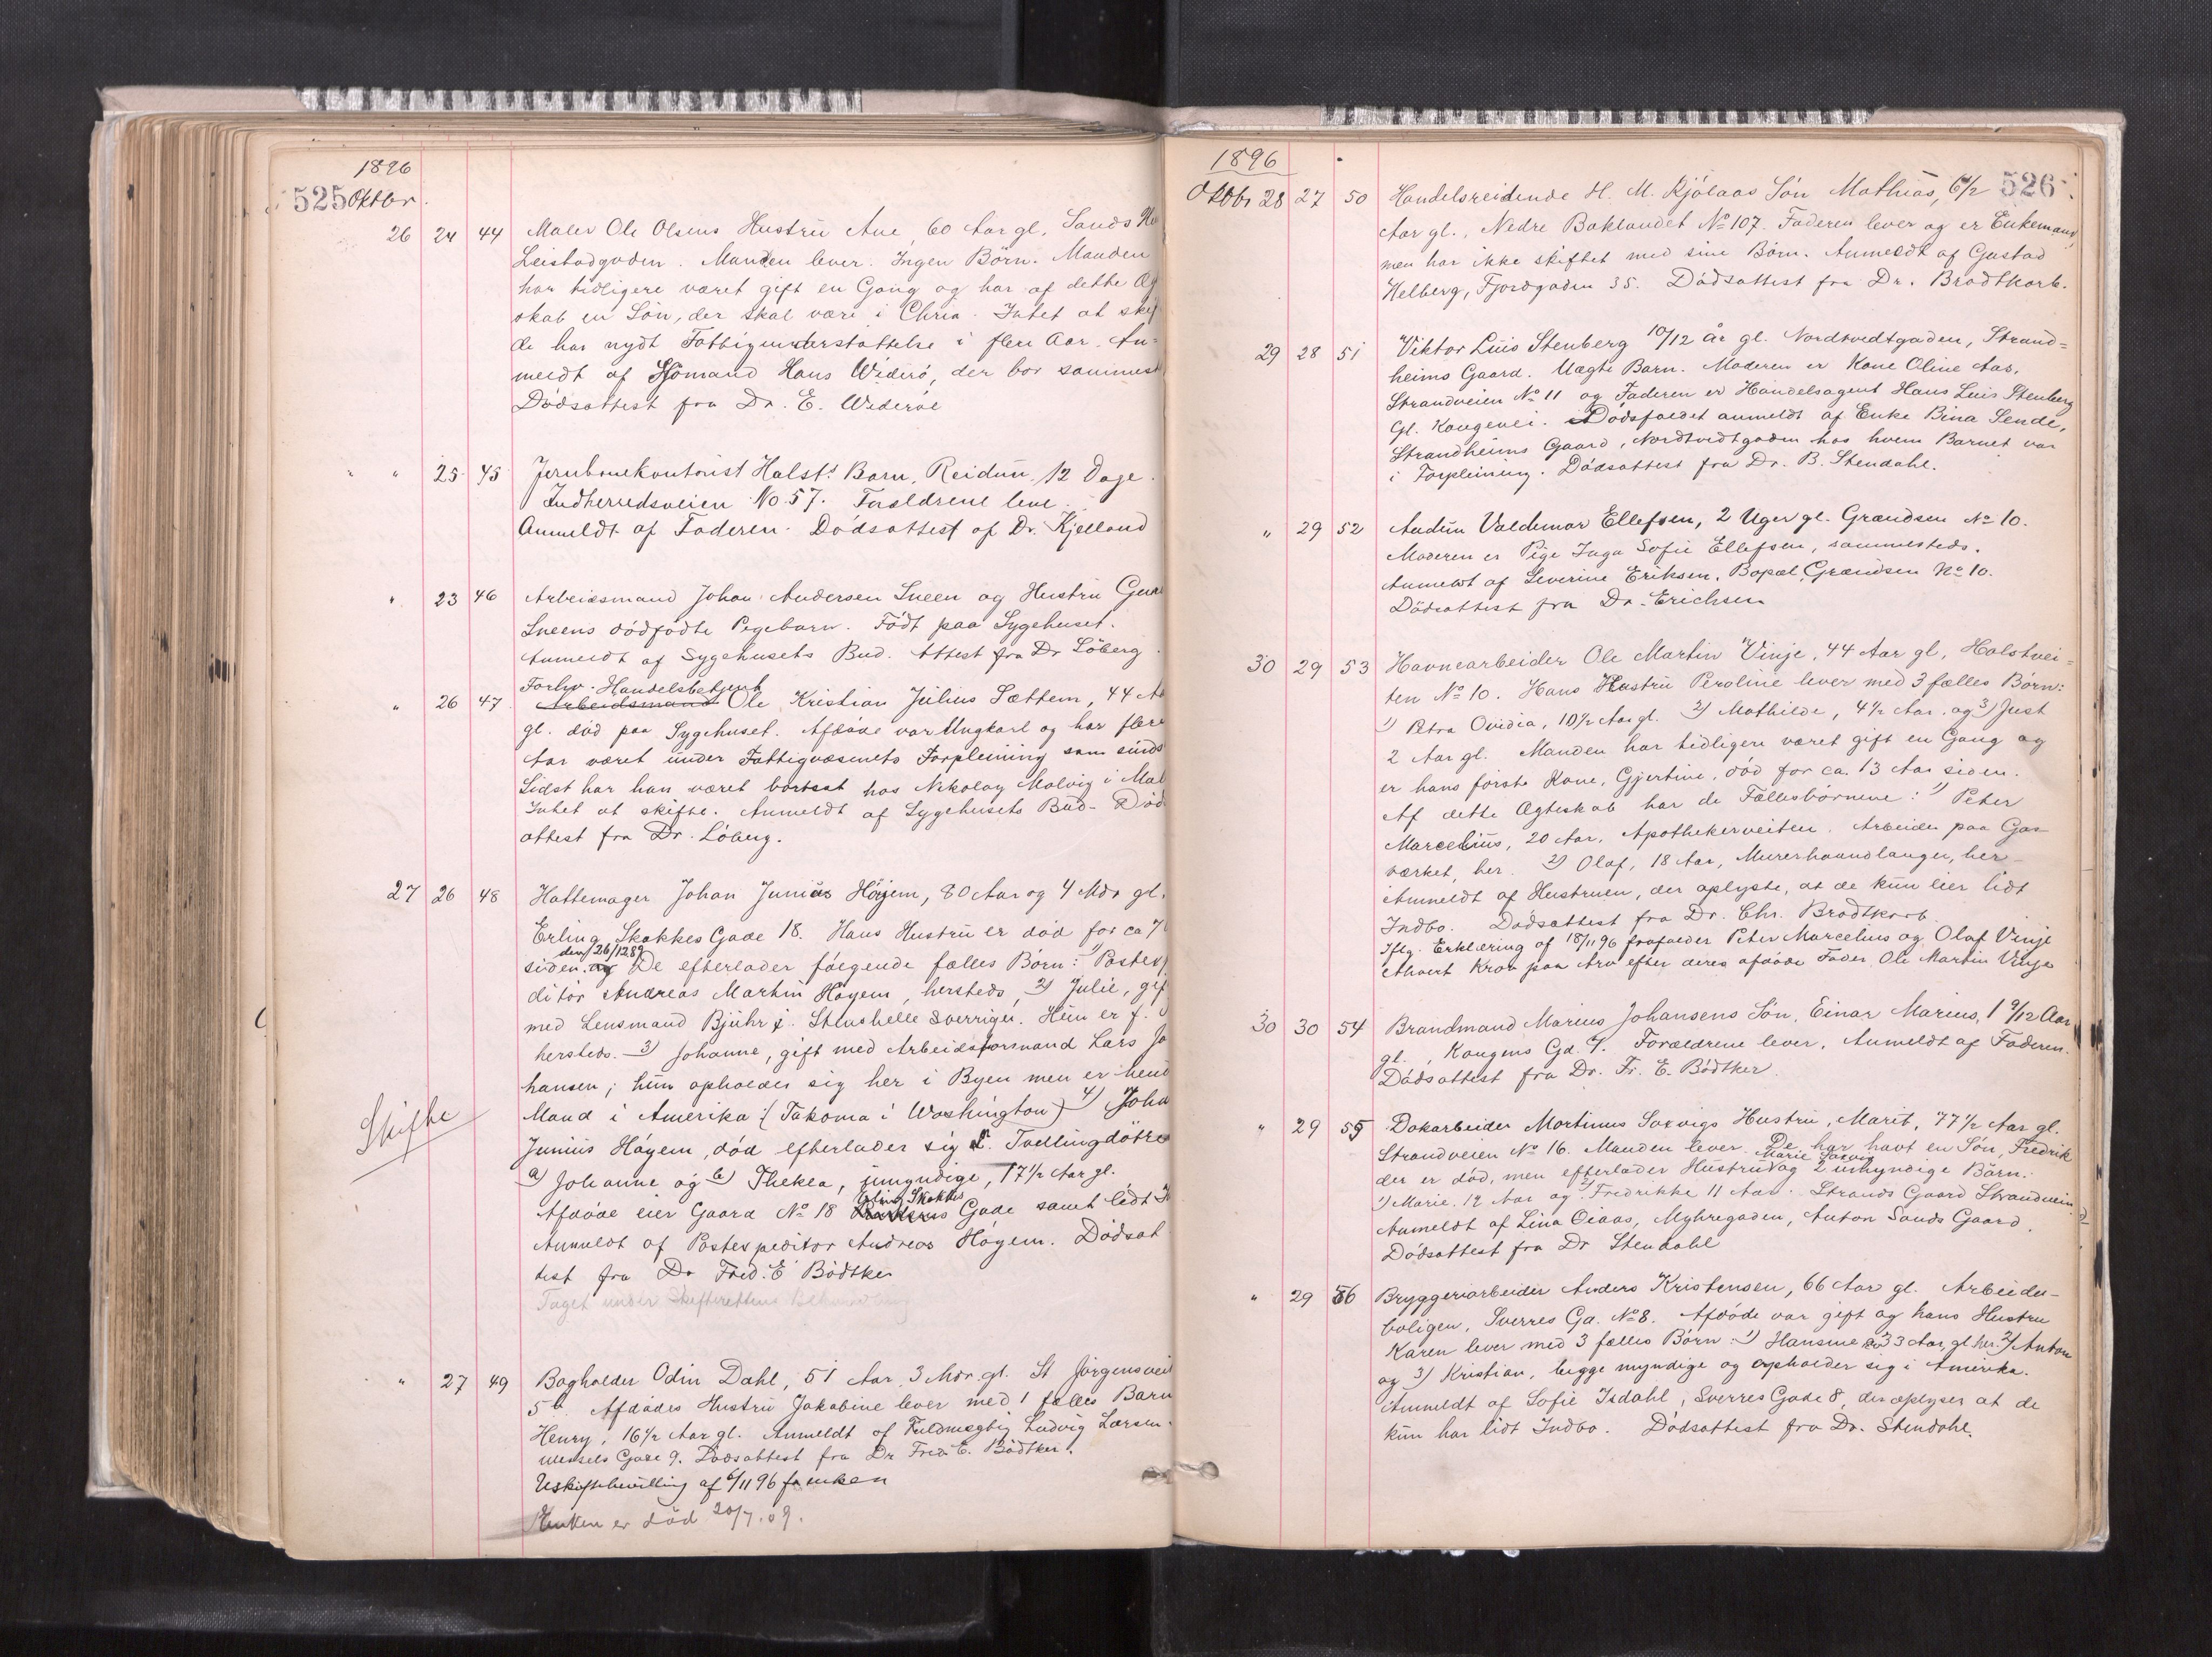 1896
525 Oktbr.
26 24 44 Maler Ole Olsens Hustru Ane, 60 Aar gl. Sands
Leistadgaden. Manden lever. Ingen Börn. Manden
har tidligere været gift en Gang og har af dette Æg
skab en Sön, der skal være i Chria. Intet at skif
de har nydt Fattigunderstøttelse i flere Aar. An-
meldt af Sjömand Hans Wideró, der bor sammest
Dödsattest fra Dr. E. Wideröe
" " 25 45 Jernbanekontorist Halsts Barn, Reidun, 12 Dage.
Indherredsveien No 57. Forældrene leve.
Anmeldt af Faderen. Dödsattest af Dr. Kjelland
" 23 46 Arbeidsmand Johan Andersen Sneen og Hustru
Sneens dödfödte Pigebarn. Födt paa Sygehuset.
Anmeldt af Sygehusets Bud. Attest fra Dr Löberg.
Forhv. Handelsbetjent
" 26 47 Arbeidsmand Ole Kristian Julius Sættem, 44 Aa
gl. död paa Sygehuset. Afdöde var Ungkarl og har flere
Aar været under Fattigvæsenets Forpleining som sinds
Sidst har han været bortsat hos Nikolay Malvig i Mal
Intet at skifte. Anmeldt af Sygehusets Bud. Död
attest fra Dr. Löberg.
27 26 48 Hattemager Johan Junius Höyem, 80 Aar og 4 Mdr gl.
Erling Skakkes Gade 18. Hans Hustru er död for ca 7
den 26/12 89
siden. og De efterlader følgende fælles Börn: 1) Postexp
ditör Andreas Martin Höyem, hersteds, 2) Julie, gif
med Lensmand Bjuhr i Sverriges. Hun er f.
hersteds. 3) Johanne, gift med Arbeidsformand Lars Jo
hansen; hun opholder sig her i Byen men er hend
Mand i Amerika (Takoma i Washington) 4) Joha
Skifte
Junius Höyem, död efterlader sig 2 Tvillingdötre
a) Johanne og b) Thekla, umyndige, 17½ Aar gl.
Erling Skakkes
Afdöde eier Gaard No 18 Gade samt lidt I
Anmeldt af Postexpeditör Andreas Höyem. Dödsat
test fra Dr Fred. E Bödtker
Taget under Skifterettens Behandling
" 27 49 Bogholder Odin Dahl, 51 Aar 3 Mdr. gl. St Jörgensveit
5. Afdödes Hustru Jakobine lever med 1 fælles Barn
Henry, 16½ Aar gl. Anmeldt af Fuldmægtig Ludvig Larsen.
Wessels Gade 9. Dödsattest fra Dr Fred. E. Bödtker.
Uskiftebevilling af 6/11 96 for enken
Enken er död 20/7.09.
1896
526
Oktbr 28 27 50 Handelsreidende H. M. Kjölaas Sön Mathias, 6½
Aar gl., Nedre Baklandet No 107. Faderen lever og er Enkemand,
men har ikke skiftet med sine Börn. Anmeldt af Gustad
Helberg, Fjordgaden 35. Dödsattest fra Dr. Brodtkorb.
29 28 51 Viktor Luis Stenberg 10/12 år gl. Nordtvedtgaden, Strand=
heims Gaard. Uægte Barn. Moderen er Kone Oline Aas,
Strandveien No 11 og Faderen er Handelsagent Hans Luis Stenberg
Gl. Kongevei. Dödsfaldet anmeldt af Enke Bina Sende,
Strandheims Gaard, Nordtvedtgaden hos hvem Barnet var
i Forpleining. Dödsattest fra Dr. B. Stendahl.
" 29 52 Audun Valdemar Ellefsen, 2 Uger gl. Grændsen No 10.
Moderen er Pige Inga Sofie Ellefsen, sammesteds.
Anmeldt af Severine Eriksen. Bopæl Grændsen No 10.
Dödsattest fra Dr. Erichsen
30 29 53 Havnearbeider Ole Martin Vinje, 44 Aar gl, Holstvei=
ten No 10. Hans Hustru Peroline lever med 3 fælles Börn:
1) Petra Ovidia, 10½ Aar gl. 2) Mathilde, 4½ Aar. og 3) Just
2 Aar gl. Manden har tidligere været gift en Gang og
er hans förste Kone, Gjertine, död for ca. 13 Aar siden.
Af dette Ægteskab har de Fællesbörnene: 1) Peter
Marcelius, 20 Aar, Apothekerveiten. Arbeider paa Gas
værket, her. 2) Olaf, 18 Aar, Murerhaandlanger, her-
Anmeldt af Hustruen, der oplyste, at de kun eier lidt
Indbo. Dödsattest fra Dr. Chr. Brodtkorb.
Iflg. Erklæring af 18/11 96 frafalder Peter Marcelius og Olaf Vinje
ethvert Krav paa Arv efter deres afdöde Fader Ole Martin Vinje
30 30 54 Brandmand Marius Johansens Sön, Einar Marius, 1 9/12 Aar
gl., Kongens Gd. 7. Forældrene lever. Anmeldt af Faderen.
Dödsattest fra Dr. Fr. E. Bödtker.
" 29 55 Dokarbeider Martinus Saxvigs Hustru, Marit, 77½ Aar gl.
Strandveien No 16. Manden lever. De har havt en Sön, Fredrik
Marie Saxvig
der er död, men efterlader Hustru og 2 umyndige Börn.
1) Marie, 12 Aar og 2) Fredrikke 11 Aar. Strands Gaard Strandveien
Anmeldt af Lina Oiaas, Myhregaden, Anton Sands Gaard.
Dödsattest fra Dr Stendahl
" 29 56 Bryggeriarbeider Anders Kristensen, 66 Aar gl. Arbeider-
boligen, Sverres Ga. No 8. Afdöde var gift og hans Hustru
Karen lever med 3 fælles Börn: 1) Hansine 33 Aar, gl her. 2) Anton
og 3) Kristian, begge myndige og opholder sig i Amerika.
Anmeldt af Sofie Isdahl, Sverres Gade 8, der oplyser at de
kun har lidt Indbo. Dödsattest fra Dr. Stendahl.